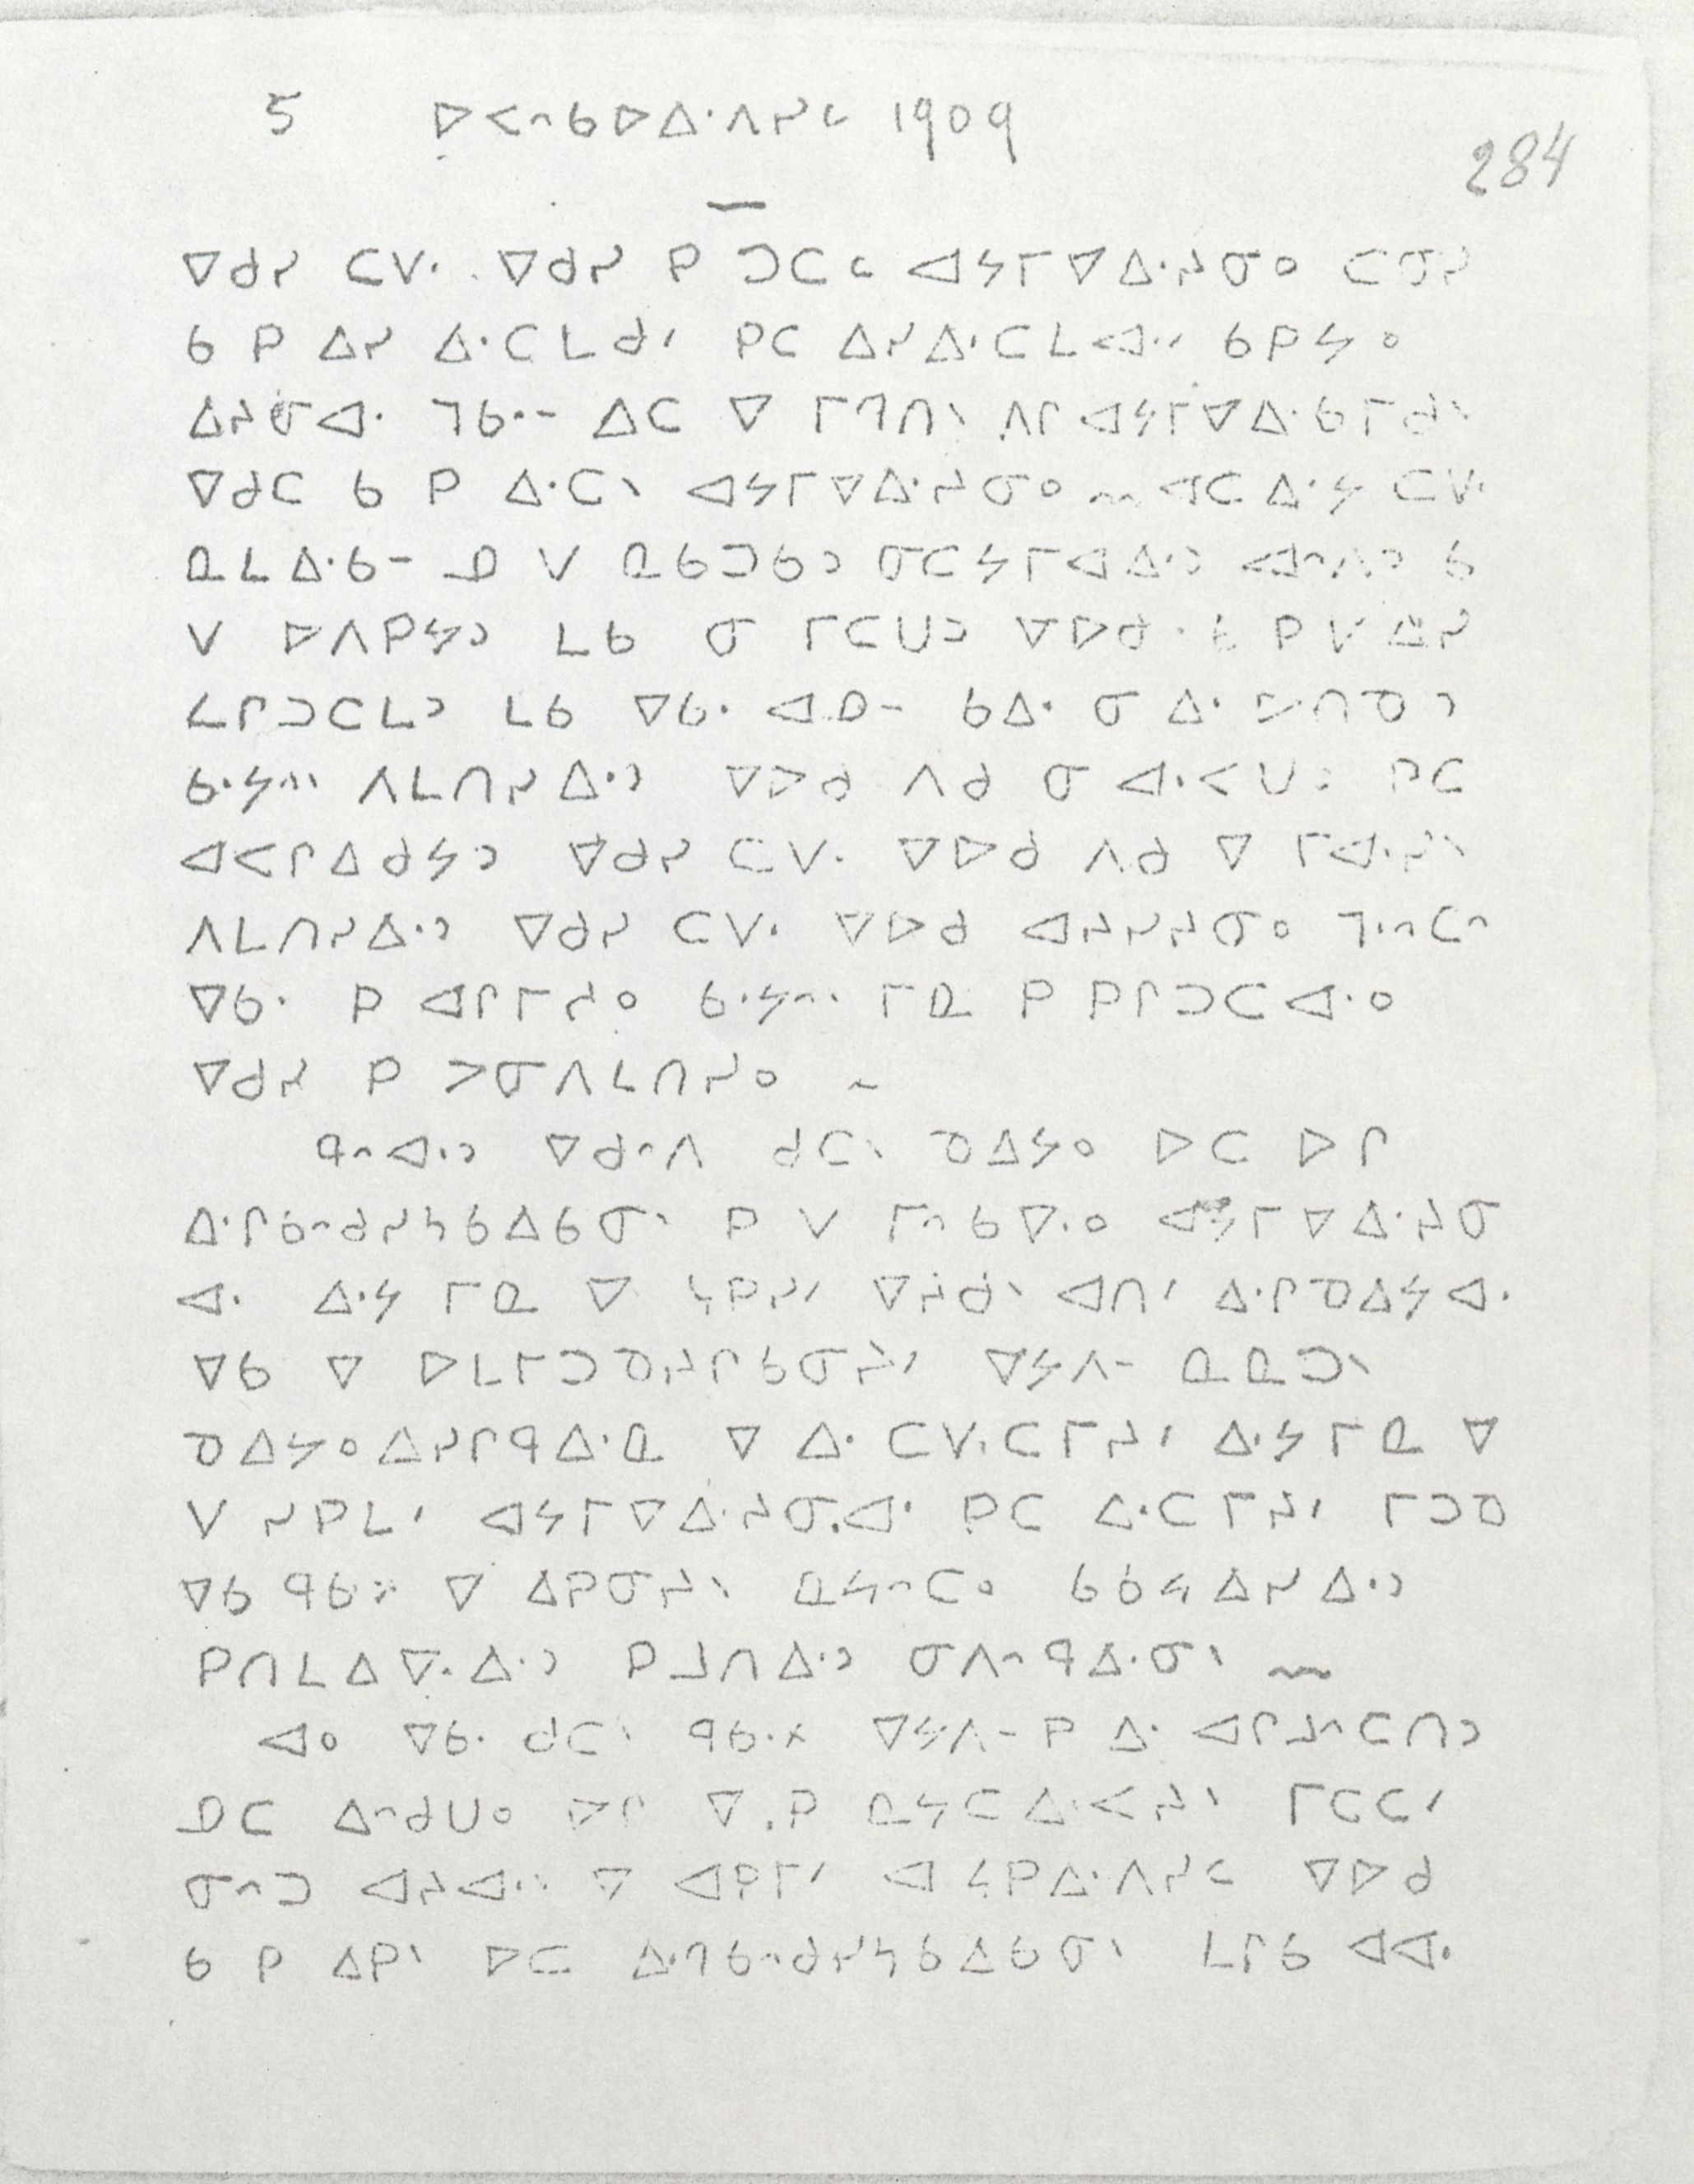 5 ᐅᐸᐢᑲᐅᐃᐧᐱᓯᒼ 1909
284
ᐁᑯᓯ ᑕᐯᐧ ᐁᑯᓯ ᑭ ᑐᑕᒼ ᐊᔭᒥᐁᐃᐧᔨᓂᐤ ᑕᓂᓯ
ᑲ ᑭ ᐃᓯ ᐃᐧᑕᒪᑯᐟ ᑭᑕ ᐃᓯᐃᐧᑕᒪᐊᐧᐟ ᑲᑭᔭᐤ
ᐃᔨᓂᐊᐧ ᒣᑲᐧᐨ ᐃᑕ ᐁ ᒥᒉᑎᐠ ᐱᒋᐊᔭᒥᐁᐃᐧᑲᒥᑯᐠ
ᐁᑯᑕ ᑲ ᑭ ᐃᐧᑕᐠ ᐊᔭᒥᐁᐃᐧᔨᓂᐤ ᐊᑕᐃᐧᔭ ᑕᐯᐧ
ᓇᒪᐃᐧᑲᐨ ᓄ ᐯ ᓇᑲᑐᑲᐣ ᓂᑕᔭᒥᐊᐃᐧᐣ ᐊᐢᐱᐣ ᑲ
ᐯ ᐅᐱᑭᔭᐣ ᒪᑲ ᓂ ᒥᑕᑌᐣ ᐁᐅᑯ ᑲ ᑭ ᐯ ᐃᓯ
ᒪᒋᑐᑕᒪᐣ ᒪᑲ ᐁᑲᐧ ᐊᓄᐨ ᑲᐃᐧ ᓂ ᐃᐧ ᐅᑎᓇᐣ
ᑲᐧᔭᐢᐠ ᐱᒪᑎᓯᐃᐧᐣ ᐁᐅᑯ ᐱᑯ ᓂ ᐊᐧᐸᑌᐣ ᑭᑕ
ᐊᐸᒋᐃᑯᔭᐣ ᐁᑯᓯ ᑕᐯᐧ ᐁᐅᑯ ᐱᑯ ᐁ ᒥᐊᐧᓯᐠ
ᐱᒪᑎᓯᐃᐧᐣ ᐁᑯᓯ ᑕᐯᐧ ᐁᐅᑯ ᐊᔨᓯᔨᓂᐤ ᒣᐧᐢᑕᐢ
ᐁᑲᐧ ᑭ ᐊᒋᒥᔪᐤ ᑲᐧᔭᐢᐠ ᒥᓇ ᑭ ᑭᒋᑐᑕᐊᐧᐤ
ᐁᑯᓯ ᑭ ᐳᓂᐱᒪᑎᓯᐤ
ᑫᐢᐊᐧᐣ ᐁᑯᐢᐱ ᑯᑕᐠ ᓇᐃᔭᐤ ᐅᑕ ᐅᒋ
ᐃᐧᒋᑲᐢᑯᓯᓴᑲᐃᑲᓂᐠ ᑭ ᐯ ᒥᐢᑲᐁᐧᐤ ᐊᔭᒥᐁᐃᐧᔨᓂ
ᐊᐧ ᐃᐧᔭ ᒥᓇ ᐁ ᓴᑭᐟ ᐁᔨᑯᐠ ᐊᑎᐟ ᐃᐧᒋᓇᐃᔭᐊᐧ
ᐁᑲ ᐁ ᐅᒪᒥᑐᓀᔨᒋᑲᓂᔨᐟ ᐁᔭᐱᐨ ᓇᓇᑐᐠ
ᓇᐃᔭᐤ ᐃᓯᒋᑫᐃᐧᓇ ᐁ ᐃᐧ ᑕᐯᐧᑕᒥᔨᐟ ᐃᐧᔭ ᒥᓇ ᐁ
ᐯ ᓯᑭᒪᐟ ᐊᔭᒥᐁᐃᐧᔨᓂᐊᐧ ᑭᑕ ᐃᐧᑕᒥᔨᐟ ᒥᑐᓇ
ᐁᑲ ᑫᑲᕽ ᐁ ᐃᑭᓂᔨᐠ ᓇᔭᐢᑕᐤ ᑲᑲᔭᐃᓯᐃᐧᐣ
ᑭᑎᒪᐃᐁᐧᐃᐧᐣ ᑭᒧᑎᐃᐧᐣ ᓂᐱᐢᑫᐃᐧᓂᐠ
ᐊᐤ ᐁᑲᐧ ᑯᑕᐠ ᑫᑲᐧᕽ ᐁᔭᐱᐨ ᑭ ᐃᐧ ᐊᒋᒧᐢᑕᑎᐣ
ᓄᑕ ᐃᐢᑯᑌᐤ ᐅᒋ ᐁ ᑭ ᓇᔭᑕᐃᐧᐸᔨᐠ ᒥᑕᑕᐟ
ᓂᐢᑐ ᐊᔨᐊᐧᐠ ᐁ ᐊᑭᒥᐟ ᐊᔭᑭᐃᐧᐱᓯᒼ ᐁᐅᑯ
ᑲ ᑭ ᐃᑭᐠ ᐅᑕ ᐃᐧᒉᑲᐢᑯᓯᓴᑲᐃᑲᓂᐠ ᒪᒋᑲ ᐊᐊᐧ